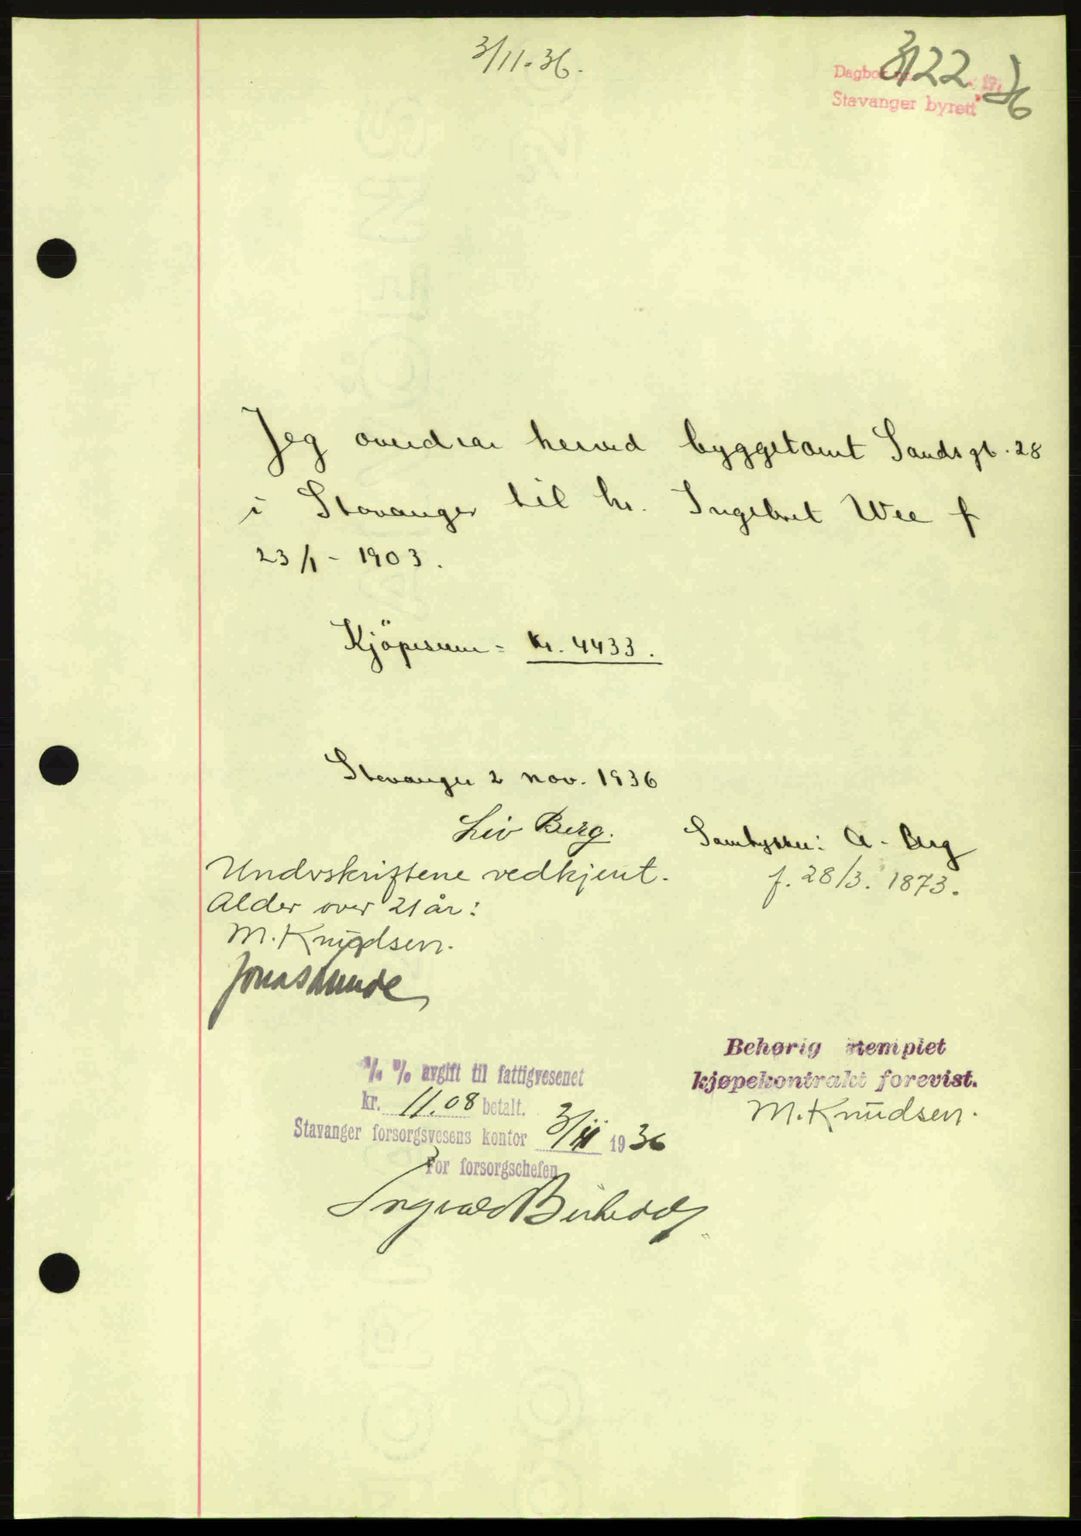 3/11.36.
3122 36
Dagbok nr. 19
Stavanger byrett
Jeg overdrar herved byggetomt Sandsgt. 28
i Stavanger til hr. Ingebret Wee f
23/1 - 1903.
Kjöpesum = kr. 4433.
Stavanger 2 nov. 1936
Liv Berg. Samtykker: A. Berg
Underskriftene vedkjent. f. 28/3. 1873.
Alder over 21 år:
M. Knudsen.
Behørig stemplet
kjøpekontrakt forevist.
M. Knudsen.
avgift til fattigvesenet
kr. 11.08 betalt.
Stavanger forsorgsvesens kontor 3/11 1936
For forsorgschefen
Ingvald